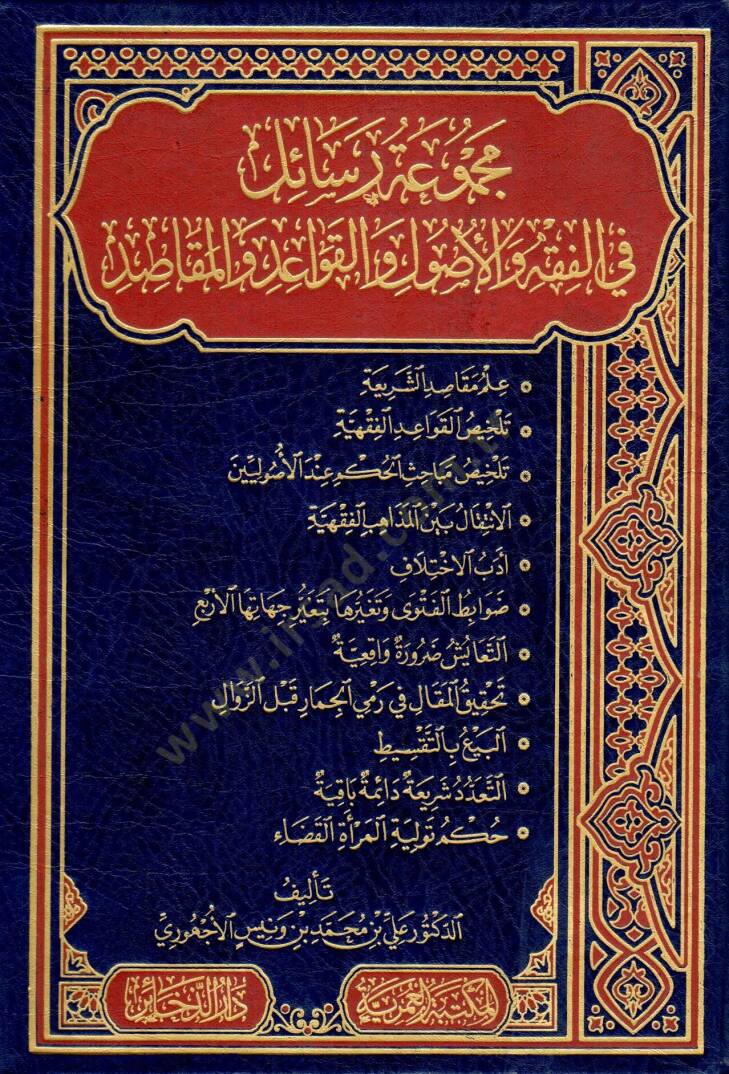 مَجْمُوعَةُ رَسَائِل
فِي الفِقْهِ وَالأُصُولِ وَالقَوَاعِدِ وَالمَقَاصِدِ
• عِلْمُ مَقَاصِدِ الشَّرِيعَةِ
• تَلْخِيصُ القَوَاعِدِ الفِقْهِيَّةِ
• تَلْخِيصُ مَبَاحِثِ الحُكْمِ عِنْدَ الأُصُولِيِّينَ
• الانْتِقَالُ بَيْنَ المَذَاهِبِ الفِقْهِيَّةِ
• أَدَبُ الاخْتِلَافِ
• ضَوَابِطُ الفَتْوَى وَتَغَيُّرُهَا بِتَغَيُّرِ جِهَاتِهَا الأَرْبَعِ
• التَّعَايُشُ ضَرُورَةٌ وَاقِعِيَّةٌ
• تَحْقِيقُ المَقَالِ فِي رَمْيِ الجِمَارِ قَبْلَ الزَّوَالِ
• البَيْعُ بِالتَّقْسِيطِ
• التَّعَدُّدُ شَرِيعَةٌ دَائِمَةٌ بَاقِيَةٌ
• حُكْمُ تَوْلِيَةِ المَرْأَةِ القَضَاءَ
تَأْلِيفُ
الدُّكْتُور عَلِيّ بْن مُحَمَّد بْن وَنِيس الأُجْهُورِيِّ
المكتبة العمرية
دار الذخائر
www.irsad.com.tr